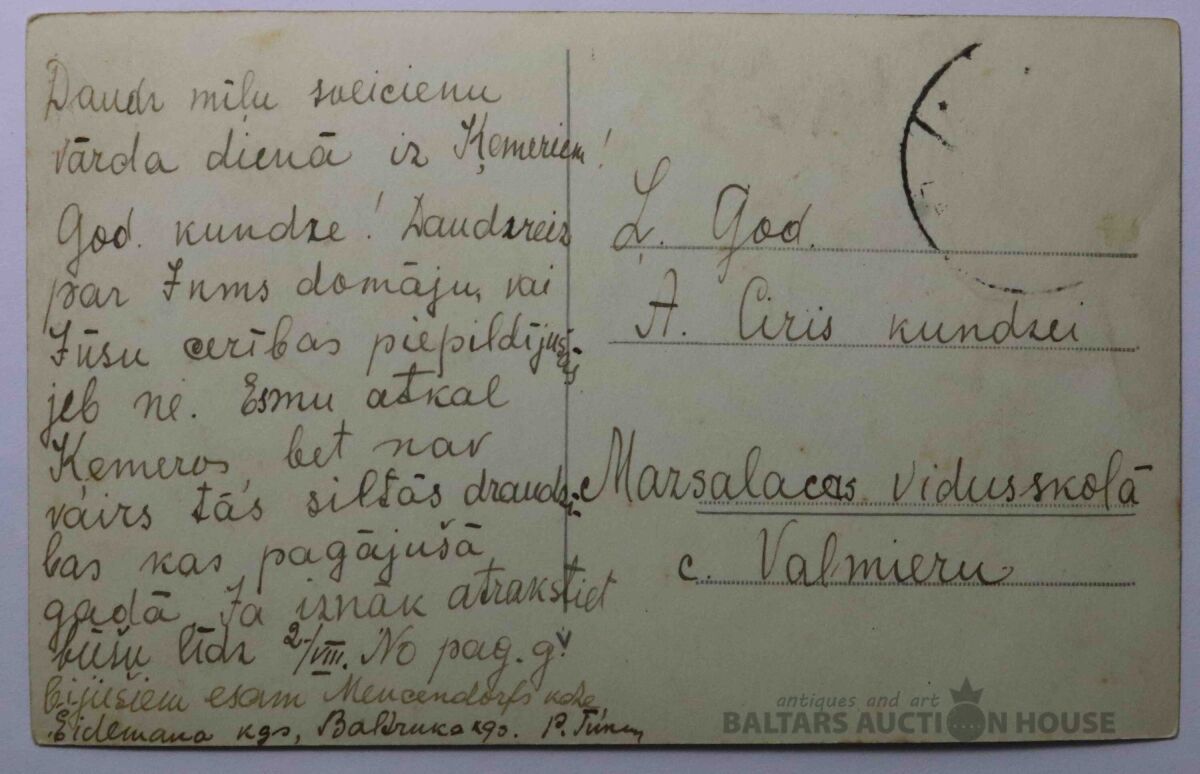 Daudz mīļu sveicienu
vārda dienā iz Ķemeriem!
God. kundze! Daudzreiz
par Jums domāju, vai
Jūsu cerības piepildījuš
ās
jeb nē. Esmu atkal
Ķemeros, bet nav
vairs tās siltās draudzī-
bas kas pagājušā
gadā. Ja iznāk atrakstiet
būšu līdz 2/VIII. No pag. g.
bijušiem esam Mencendorfs kdze
Eidemana kgs, Baltruka kgs. P.
Ļ. God.
A. Ciris kundzei
Mazsalacas vidusskolā
c. Valmieru
antiques and art
BALTARS AUCTION HOUSE